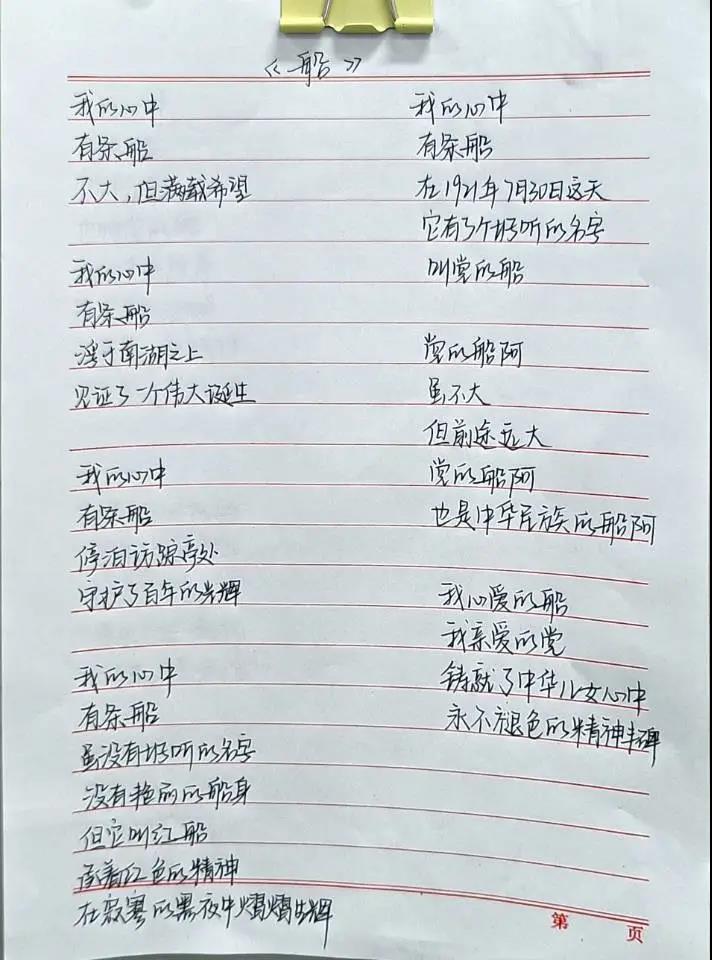 《船》
我的心中
有条船
不大，但满载希望
我的心中
有条船
浮于南湖之上
见证了一个伟大诞生
我的心中
有条船
停泊访踪亭处
守护了百年的光辉
我的心中
有条船
虽没有好听的名字
没有艳丽的船身
但它叫红船
承着红色的精神
在寂寥的黑夜中熠熠生辉
我的心中
有条船
在1921年7月30日这天
它有了个好听的名字
叫党的船
党的船阿
虽不大
但前途远大
党的船阿
也是中华民族的船阿
我心爱的船
我亲爱的党
铸就了中华儿女心中
永不褪色的精神丰碑
第 页